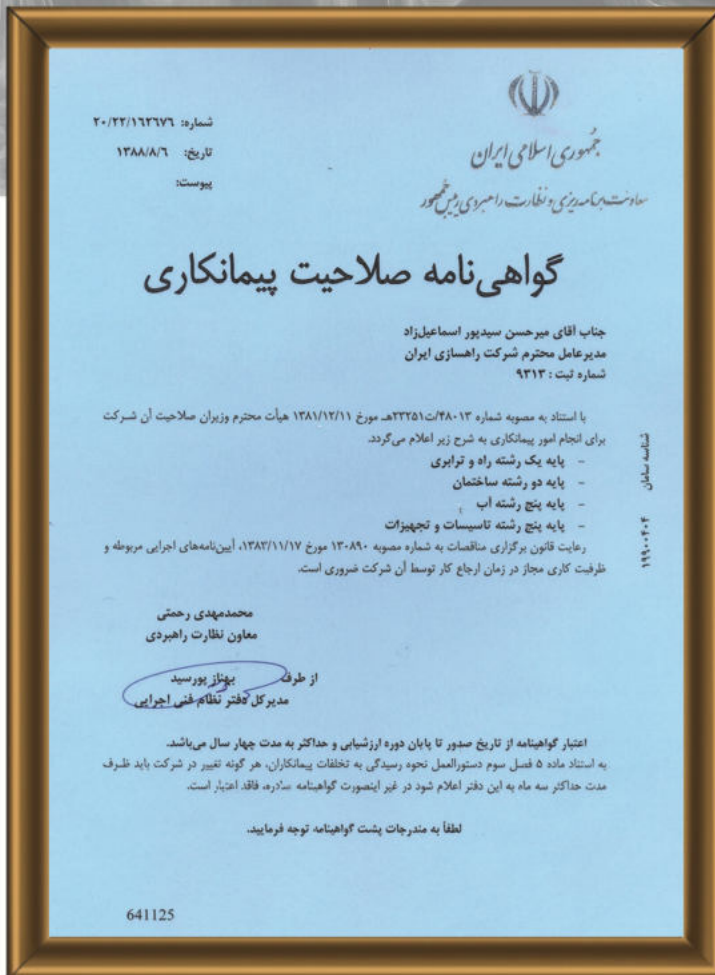 جمهوری اسلامی ایران
معاونت برنامه‌ریزی و نظارت راهبردی رییس جمهور
شماره: ۲۰/۲۲/۱۶۲۶۷۶
تاریخ: ۱۳۸۸/۸/۶
پیوست:
گواهی‌نامه صلاحیت پیمانکاری
جناب آقای میرحسن سیدپور اسماعیل‌زاد
مدیرعامل محترم شرکت راهسازی ایران
شماره ثبت : ۹۳۱۳
با استناد به مصوبه شماره ۴۸۰۱۳/ت۲۳۲۵۱هـ مورخ ۱۳۸۱/۱۲/۱۱ هیأت محترم وزیران صلاحیت آن شرکت
برای انجام امور پیمانکاری به شرح زیر اعلام می‌گردد.
- پایه یک رشته راه و ترابری
- پایه دو رشته ساختمان
- پایه پنج رشته آب
- پایه پنج رشته تاسیسات و تجهیزات
رعایت قانون برگزاری مناقصات به شماره مصوبه ۱۳۰۸۹۰ مورخ ۱۳۸۳/۱۱/۱۷، آیین‌نامه‌های اجرایی مربوطه و
ظرفیت کاری مجاز در زمان ارجاع کار توسط آن شرکت ضروری است.
شناسه سامان ۱۹۹۰۰۴۰۴
محمدمهدی رحمتی
معاون نظارت راهبردی
از طرف بهناز پورسید
مدیرکل دفتر نظام فنی اجرایی
اعتبار گواهینامه از تاریخ صدور تا پایان دوره ارزشیابی و حداکثر به مدت چهار سال می‌باشد.
به استناد ماده ۵ فصل سوم دستورالعمل نحوه رسیدگی به تخلفات پیمانکاران، هر گونه تغییر در شرکت باید ظرف
مدت حداکثر سه ماه به این دفتر اعلام شود در غیر اینصورت گواهینامه صادره، فاقد اعتبار است.
لطفاً به مندرجات پشت گواهینامه توجه فرمایید.
641125